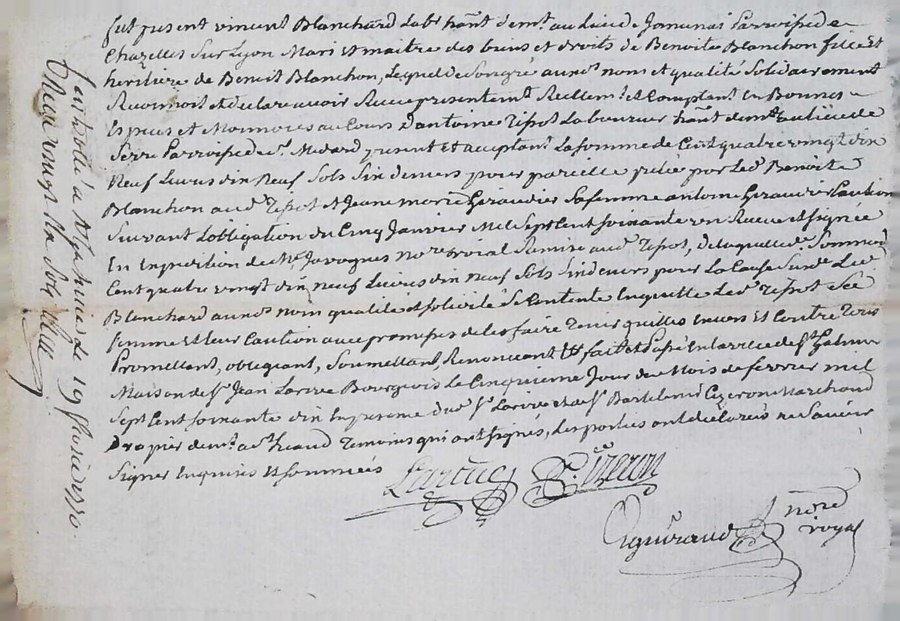 fut present vincent Blanchard Labr hant demt au Lieu de Jamunas Parroisse de
Chazelles Sur Lyon Mari et maitre des biens et droits de Benoite Blanchon fille Et
heritiere de Benoit Blanchon, Lequel de Son gré aud. noms et qualité Solidairement
Reconnoit et declare avoir Receu presentemt Reellemt et Comptant en Bonnes
Especes et Monnoies au Cours d'antoine Tissot Laboureur hant demt au Lieu de
Serre Parroisse de St Medard present et aceptant La Somme de Cent quatre vingt dix
Neuf Livres dix Neuf Sols Six deniers pour pareille prétée par Led. Benoit
Blanchon aud. Tissot et Jeanne Marie Giraudier Sa femme antoine Giraudier Caution
Suivant L'obligation du Cinq Janvier Mil Sept Cent Soixante un Receue et Signée
En Expedition de Me Javogues nore roial Remise aud. Tissot, de laquelle de Somme de
Cent quatre vingt dix neuf Livres dix neuf Sols Six deniers pour La Cause Susd. Led.
Blanchard aud. nom qualité et Solidité Se Contente En quitte Led. Tissot Sad.
femme et leur Caution avec promesses de les faire tenir quittes envers Et Contre Tous
Promettant, obligeant, Soumettant, Renonceant &c fait et Passé En la ville de St Galmier
Maison de Sr Jean Larive Bourgeois Le Cinquieme Jour du Mois de fevrier mil
Sept Cent Soixante dix En presence dud. Sr Larive et de Sr Bartelemi Cizeron Marchand
Drapier demt aud. St Heand Temoins qui ont Signés, Les parties ont declarés ne Savoir
Signer Enquises et Sommées
Larive Cizeron
nore
royal
Controllé à St Galmier Le 19 fevrier 1770
Reçu vingt Six Sols